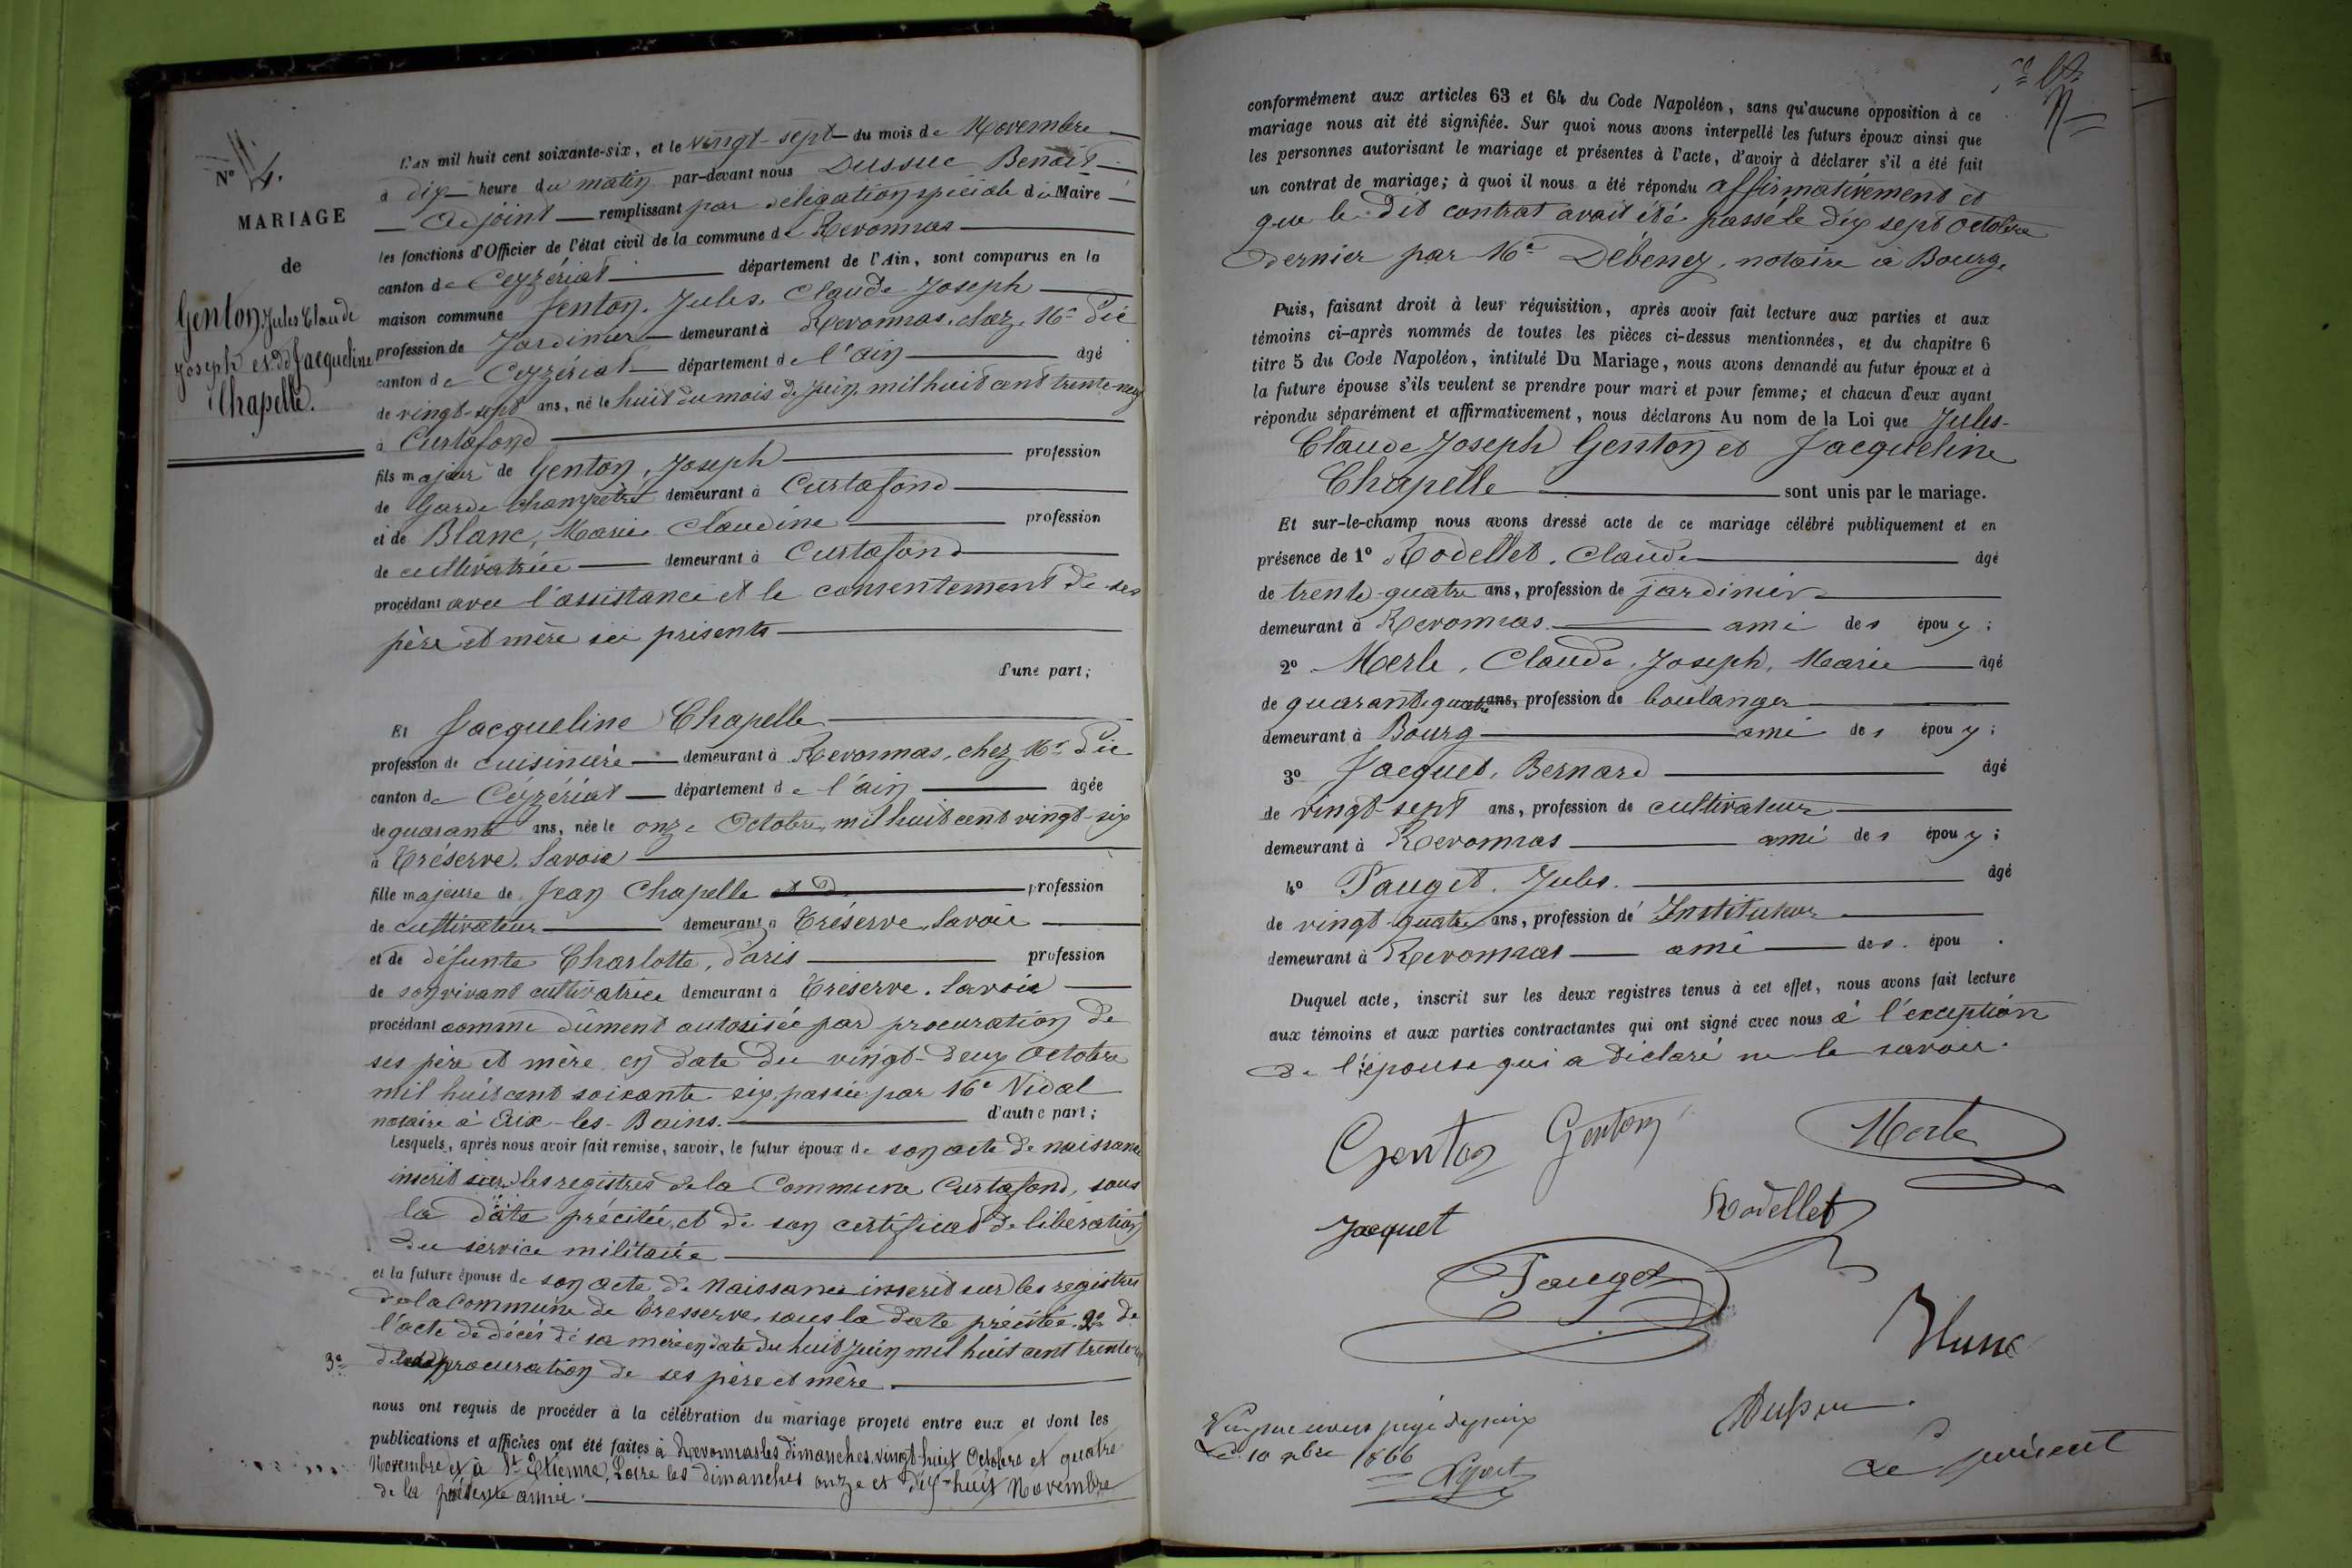 N° 4.
MARIAGE
de
Genton, Jules Claude
Joseph et de Jacqueline
Chapelle.
L'AN mil huit cent soixante-six, et le vingt-sept du mois de Novembre
à dix heure du matin par-devant nous Dussuc Benoit
Adjoint remplissant par délégation spéciale du Maire
les fonctions d'Officier de l'état civil de la commune de Revonnas
canton de Ceyzériat département de l'Ain, sont comparus en la
maison commune Jenton, Jules, Claude Joseph
profession de Jardinier demeurant à Revonnas, chez Mr Pic
canton de Ceyzériat département de l'ain âgé
de vingt-sept ans, né le huit du mois de juin mil huit cent trente-neuf
à Curtafond
fils majeur de Genton, Joseph profession
de Garde Champêtre demeurant à Curtafond
et de Blanc, Marie Claudine profession
de cultivatrice demeurant à Curtafond
procédant avec l'assistance et le consentement de ses
père et mère ici présents
d'une part;
Et Jacqueline Chapelle
profession de cuisinière demeurant à Revonnas, chez Mr Pic
canton de Céyzériat département de l'ain âgée
de quarante ans, née le onze Octobre, mil huit cent vingt-six
à Tréserve, Savoie
fille majeure de Jean Chapelle profession
de cultivateur demeurant à Tréserve, Savoie
et de défunte Charlotte, Paris profession
de son vivant cultivatrice demeurant à Tréserve, Savoie
procédant comme dûment autorisée par procuration de
ses père et mère en date du vingt-deux Octobre
mil huit cent soixante six, passée par Me Vidal
notaire à Aix-les-Bains. d'autre part;
Lesquels, après nous avoir fait remise, savoir, le futur époux de son acte de naissance
inscrit sur les registres de la Commune Curtafond, sous
la date précitée, et de son certificat de libération
du service militaire
et la future épouse de son acte de naissance inscrit sur les registres
de la Commune de Tresserve, sous la date précitée. 2° de
l'acte de décès de sa mère en date du huit juin mil huit cent trente
3° procuration de ses père et mère
nous ont requis de procéder à la célébration du mariage projeté entre eux et dont les
publications et affiches ont été faites à Revonnas les dimanches vingt-huit Octobre et quatre
Novembre et à St Etienne, Loire les dimanches onze et dix-huit Novembre
de la présente année.
conformément aux articles 63 et 64 du Code Napoléon, sans qu'aucune opposition à ce
mariage nous ait été signifiée. Sur quoi nous avons interpellé les futurs époux ainsi que
les personnes autorisant le mariage et présentes à l'acte, d'avoir à déclarer s'il a été fait
un contrat de mariage; à quoi il nous a été répondu affirmativement et
que le dit contrat avait été passé le dix sept Octobre
dernier par Me Débeney, notaire à Bourg,
Puis, faisant droit à leur réquisition, après avoir fait lecture aux parties et aux
témoins ci-après nommés de toutes les pièces ci-dessus mentionnées, et du chapitre 6
titre 5 du Code Napoléon, intitulé Du Mariage, nous avons demandé au futur époux et à
la future épouse s'ils veulent se prendre pour mari et pour femme; et chacun d'eux ayant
répondu séparément et affirmativement, nous déclarons Au nom de la Loi que Jules-
Claude Joseph Genton et Jacqueline
Chapelle sont unis par le mariage.
Et sur-le-champ nous avons dressé acte de ce mariage célébré publiquement et en
présence de 1° Rodellet, Claude âgé
de trente-quatre ans, profession de jardinier
demeurant à Revonnas ami des époux;
2° Merle, Claude, Joseph, Marie âgé
de quarante quatre ans, profession de boulanger
demeurant à Bourg ami des époux;
3° Jacquet, Bernard âgé
de vingt-sept ans, profession de cultivateur
demeurant à Revonnas ami des époux;
4° Pauget, Jules. âgé
de vingt-quatre ans, profession de Instituteur
demeurant à Revonnas ami des épou.
Duquel acte, inscrit sur les deux registres tenus à cet effet, nous avons fait lecture
aux témoins et aux parties contractantes qui ont signé avec nous à l'exception
de l'épouse qui a déclaré ne le savoir.
Genton Genton Merle
Jacquet Rodellet
Pauget
Dussuc
Vu par nous juge de paix
Le 10 xbre 1866